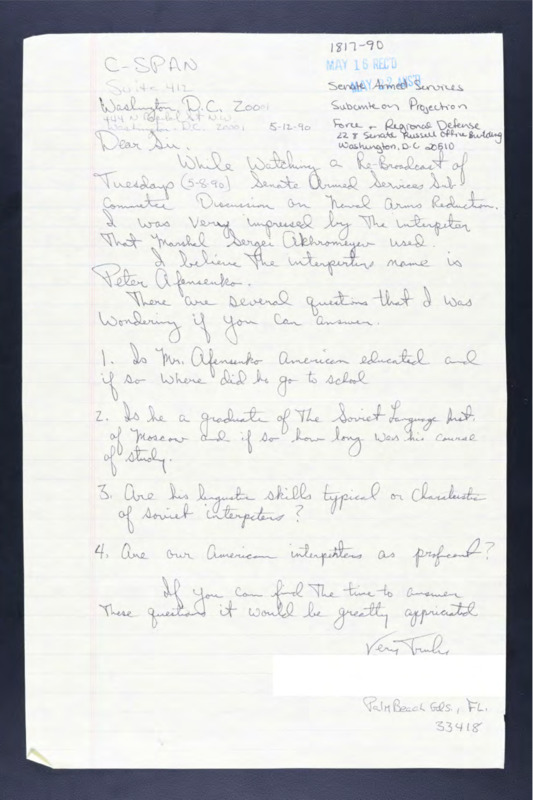 1817-90
C-SPAN
MAY 16 REC'D
Suite 412
Senate Armed Services
Washington, D.C. 20001
Subcmte on Projection
444 N Capitol St N.W.
Force - Regional Defense
Washington, D.C. 20001
5-12-90
228 Senate Russell Office Building
Washington, D.C 20510
Dear Sir.
While Watching a Re-Broadcast of
Tuesdays (5-8-90) Senate Armed Services Sub-
Committee Discussion on Naval Arms Reduction.
I was very impressed by The Interpeter
That Marshel Sergei Akhromeyev used.
I believe The interperters name is
Peter Afensenko.
There are several questions that I was
wondering if you can answer.
1. Is Mr. Afensenko American educated and
if so where did he go to school
2. Is he a graduate of The Soviet Language Inst.
of Moscow and if so how long was his course
of study.
3. Are his linguistic skills typical or
of soviet interpeters?
4. Are our American interpeters as proficent?
If you can find The time to answer
These questions it would be greatly appriciated
Very Truly
Palm Beach Gds, FL.
33418